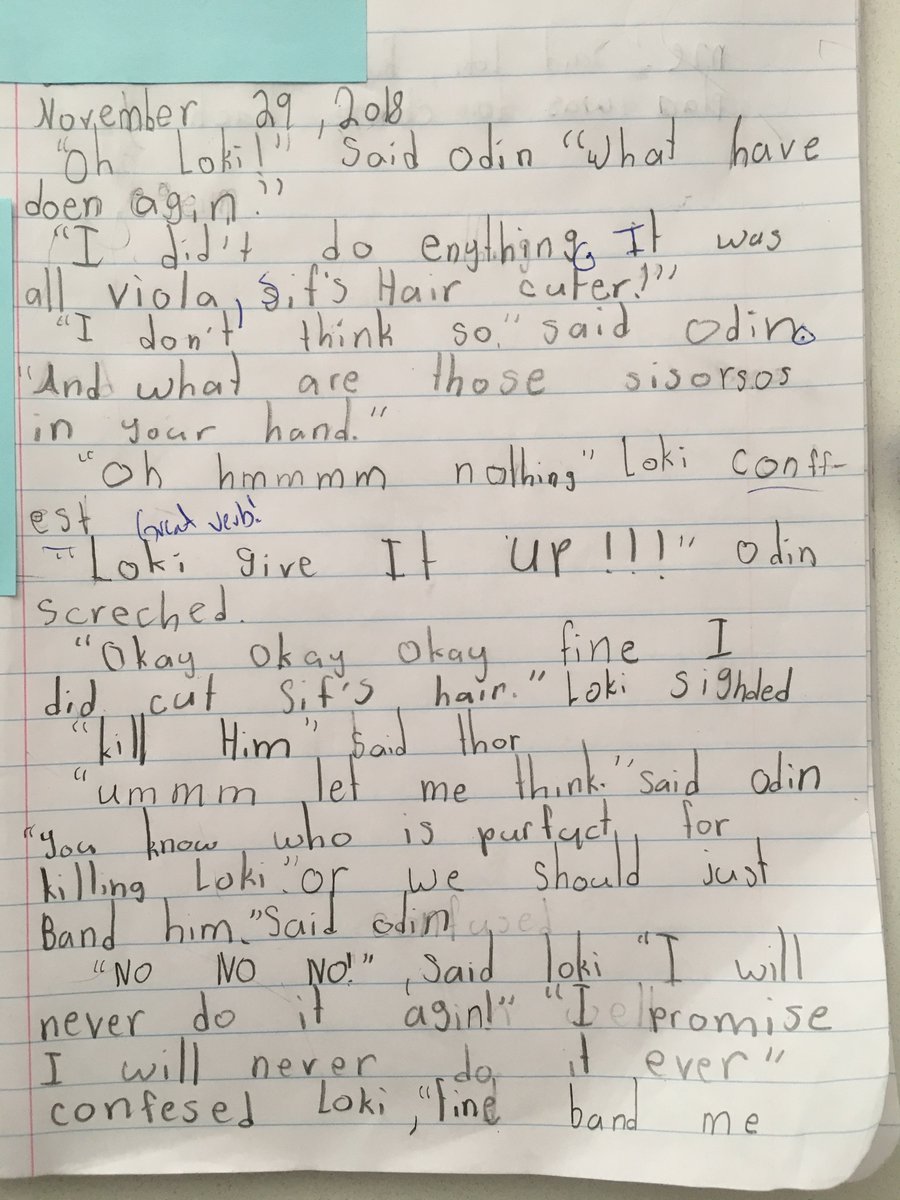 November 29, 2018
"Oh Loki!" Said Odin "What have
doen agin."
"I did't do enything, It was
all viola, Sif's Hair cuter!"
"I don't think so." said Odin.
"And what are those sisorsos
in your hand."
"Oh hmmmm nothing" Loki conff-
est Great verb!
"Loki give It UP!!!" Odin
screched.
"Okay okay okay fine I
did cut Sif's hair." Loki sighded
"kill Him" Said thor
"ummm let me think." said odin
"you know who is purfyct for
killing Loki." or we should just
Band him." Said odin
"NO NO NO!", Said loki "I will
never do it agin!" "I promise
I will never do it ever"
confesed Loki, "fine band me